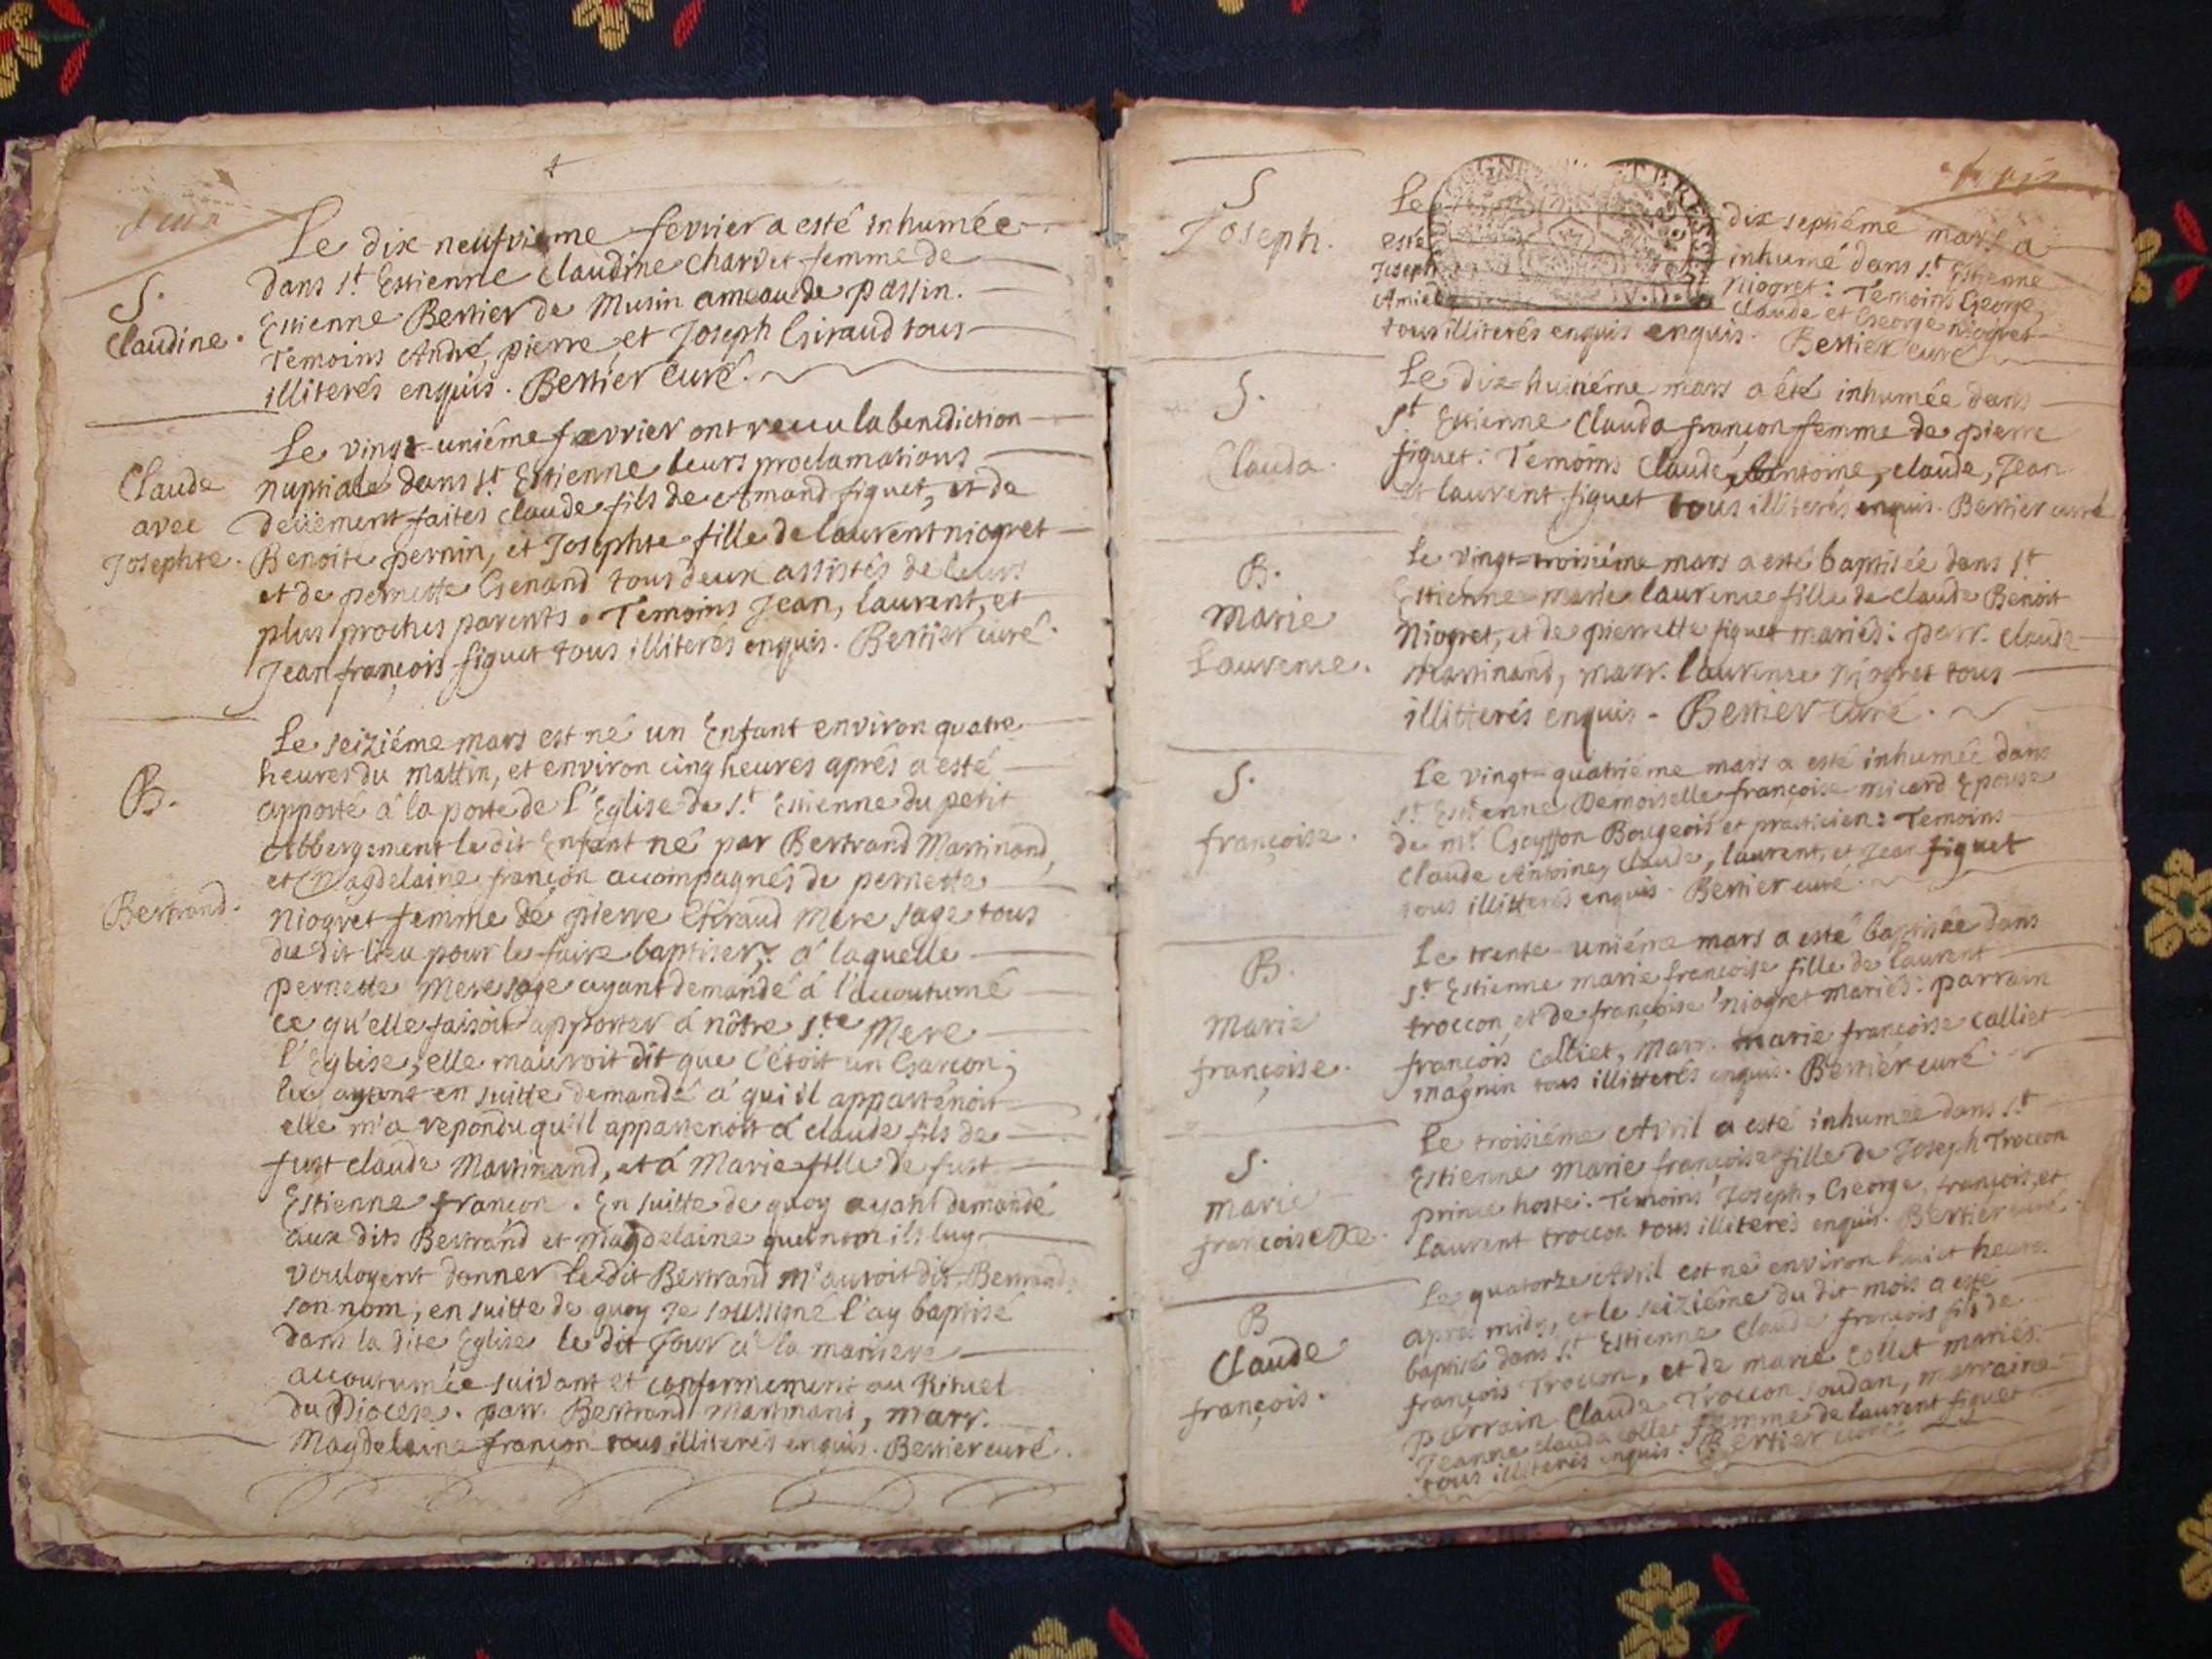 deux
Le dix-neufvieme fevrier a esté inhumée
dans St. Estienne claudine charvet femme de
Estienne Bertier de Musin ameau de passin.
S.
Claudine.
Temoins André, pierre et Joseph Giraud tous
illiterés enquis. Bertier curé.
Le vingt-uniéme fevrier ont receu la benediction
Claude
avec
Josephte.
nuptiale dans St. Estienne leurs proclamations
deüement faites claude fils de Amand figuet, et de
Benoite pernin, et Josephte fille de laurent niogret
et de pernette Genand tous deux assistés de leurs
plus proches parents. Temoins Jean, laurent, et
Jean françois figuet tous illiterés enquis. Bertier curé.
Le seiziéme mars est né un Enfant environ quatre
heures du mattin, et environ cinq heures aprés a esté
B.
Bertrand.
apporté á la porte de l'Eglise de St. Estienne du petit
Abbergement le dit Enfant né par Bertrand Martinand,
et Magdelaine françon accompagnés de pernette
Niogret femme de pierre Giraud Mere sage tous
du dit lieu pour le faire baptiser, á laquelle
pernette Mere sage ayant demandé á l'accoutumé
ce qu'elle faisoit apporter á nôtre Ste Mere
l'Eglise, elle m'auroit dit que c'étoit un Garcon;
luy ayant en suitte demandé á qui il appartenoit
elle m'a repondu qu'il appartenoit á claude fils de
fust claude Martinand, et á Marie fille de fust
Estienne françon. En suitte de quoy ayant demandé
aux dits Bertrand et Magdelaine quel nom ils luy
vouloyent donner le dit Bertrand m'auroit dit Bertrand
son nom, en suitte de quoy Je soussigné l'ay baptisé
dans la dite Eglise le dit Jour á la maniere
accoutumée suivant et conformement au Rituel
du Diocese. parr. Bertrand Martinand, marr.
Magdelaine françon tous illiterés enquis. Bertier curé.
S
Joseph.
Le dix septiéme mars a
esté inhumé dans St. Estienne
Joseph Niogret: Temoins George,
Amied Claude et George niogret
tous illiterés enquis enquis. Bertier curé
S.
Clauda.
Le dix-huitiéme mars a été inhumée dans
St. Estienne Clauda françon femme de pierre
figuet: Temoins Claude, Antoine, claude, Jean
et laurent figuet tous illiterés enquis. Bertier curé
B.
Marie
Laurence.
Le vingt-troisiéme mars a esté baptisée dans St
Estienne marie laurence fille de claude Benoit
Niogret, et de pierrette figuet mariés: parr. claude
Martinand, marr. laurence Niogret tous
illitterés enquis. Bertier curé.
S.
françoise.
Le vingt-quatriéme mars a esté inhumée dans
St. Estienne Demoiselle françoise micard Epouse
de mr. Gayffon Bougeois et practicien: Temoins
Claude Antoine, claude, laurent, et Jean figuet
tous illitterés enquis. Bertier curé.
B.
Marie
françoise.
Le trente-uniéme mars a esté baptisée dans
St. Estienne marie françoise fille de laurent
troccon, et de françoise Niogret mariés: parrain
françois Colliet, marr. marie françoise colliet
magnin tous illitterés enquis. Bertier curé.
S.
marie
francoise
Le troisiéme Avril a esté inhumée dans St
Estienne Marie françoise fille de Joseph Troccon
prince hoste: Temoins Joseph, George, françois, et
laurent troccon tous illiterés enquis. Bertier curé.
B
Claude
françois.
Le quatorze Avril est né environ huict heures
aprés midy, et le seiziéme du dit mois a esté
baptisé dans St. Estienne Claude françois fils de
françois Troccon, et de marie Collet mariés
parrain Claude Troccon soudan, marraine
Jeanne clauda collet femme de laurent figuet
tous illiterés enquis. Bertier curé